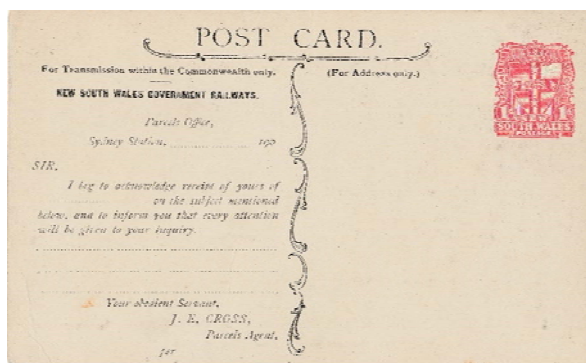 POST CARD.
For Transmission within the Commonwealth only.
(For Address only.)
NEW SOUTH WALES GOVERNMENT RAILWAYS.
Parcels Office,
Sydney Station, .................... 190
SIR.
I beg to acknowledge receipt of yours of
.................... on the subject mentioned
below, and to inform you that every attention
will be given to your inquiry.
Your obedient Servant,
J. E. CROSS,
Parcels Agent.
for
1d
1d
NEW
SOUTH WALES
POSTAGE